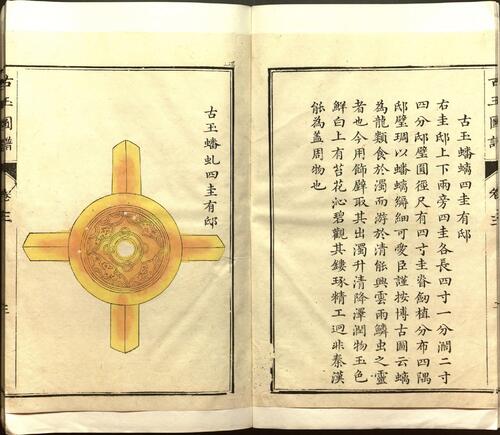 古玉圖譜 卷三
古玉蟠螭四圭有邸
右圭邸上下兩旁四圭各長四寸一分濶二寸
四分邸璧圓徑尺有四寸圭脊劒植分布四隅
邸璧琱以蟠螭纚細可愛臣謹按博古圖云螭
為龍類食於濁而游於清能興雲雨鱗虫之靈
者也今用飾辟取其出濁升清降澤潤物玉色
鮮白上有苔花沁碧觀其鏤琢精工迥非秦漢
能為盖周物也
古玉蟠虬四圭有邸
古玉圖譜 卷三 三